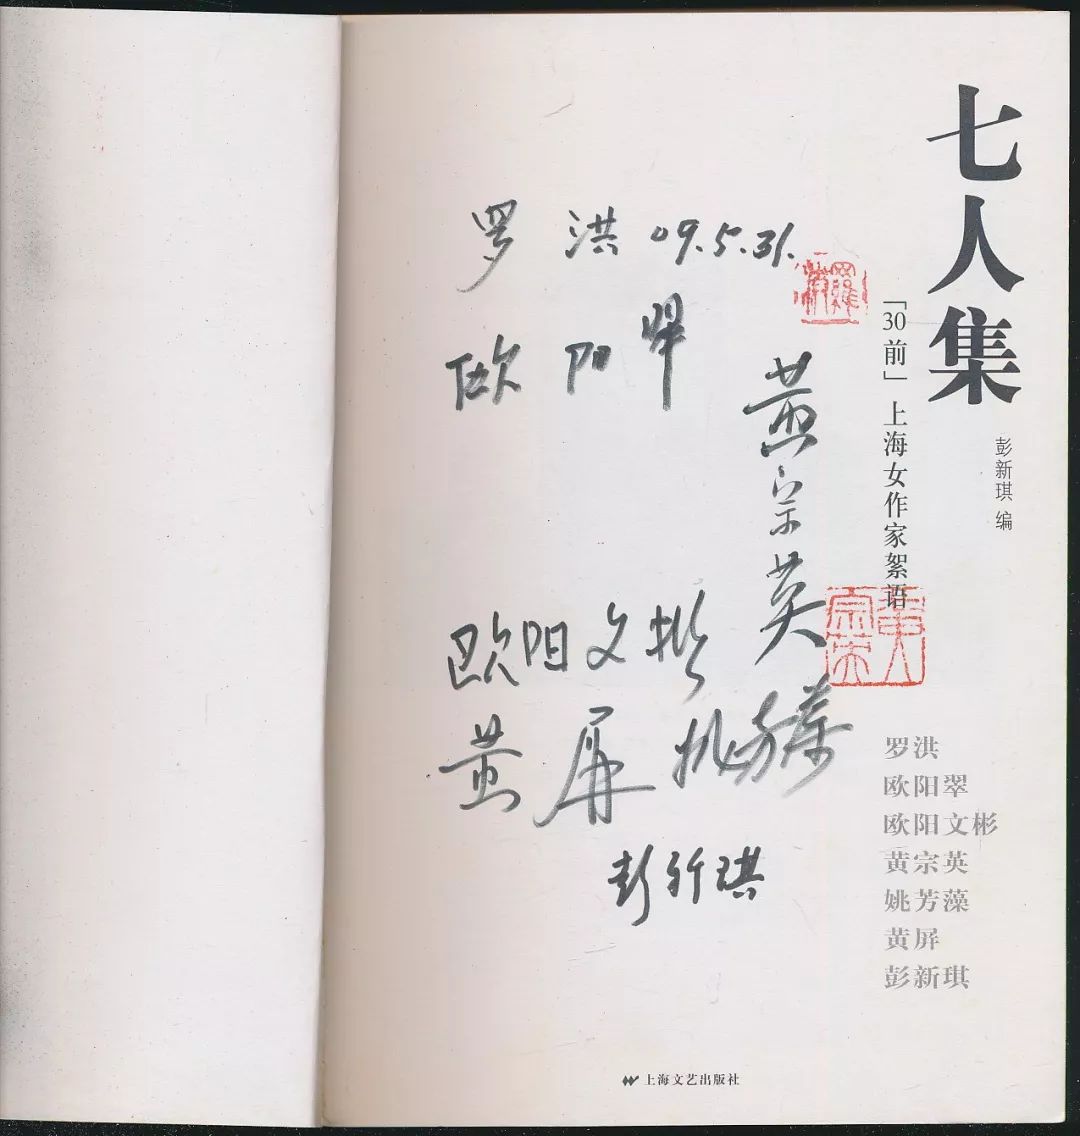 七人集
「30前」上海女作家絮语
彭新琪 编
罗洪 09.5.31.
欧阳翠
黄宗英
欧阳文彬
黄屏 姚芳藻
彭新琪
罗洪
欧阳翠
欧阳文彬
黄宗英
姚芳藻
黄屏
彭新琪
上海文艺出版社